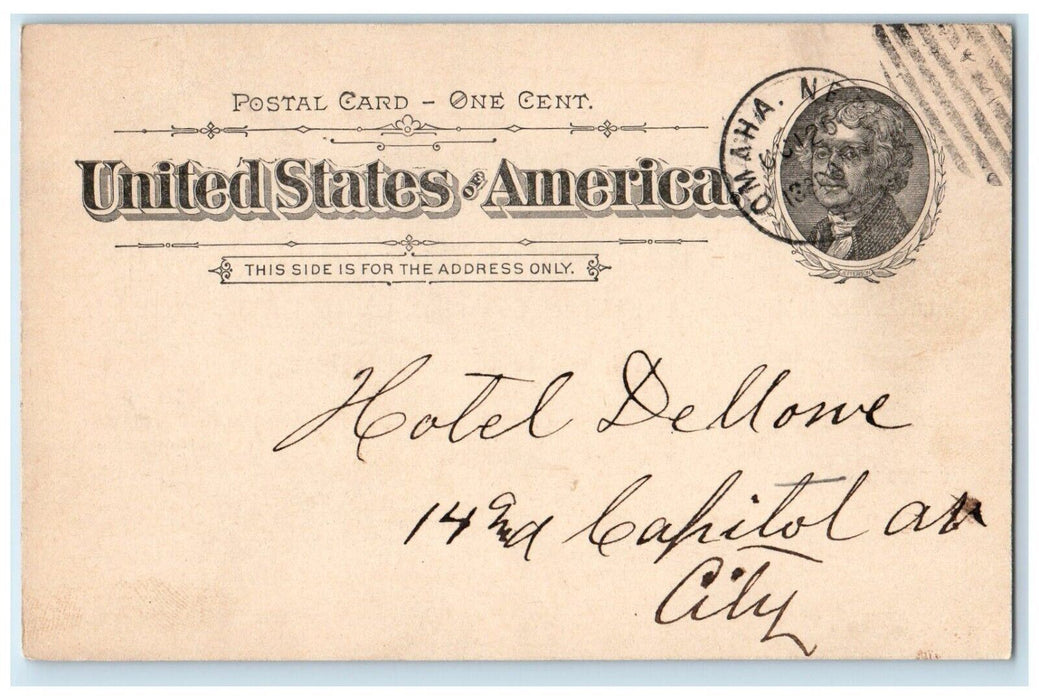 POSTAL CARD – ONE CENT.
United States OF America
THIS SIDE IS FOR THE ADDRESS ONLY.
OMAHA. NE
Hotel Dellone
14 and Capitol av
City